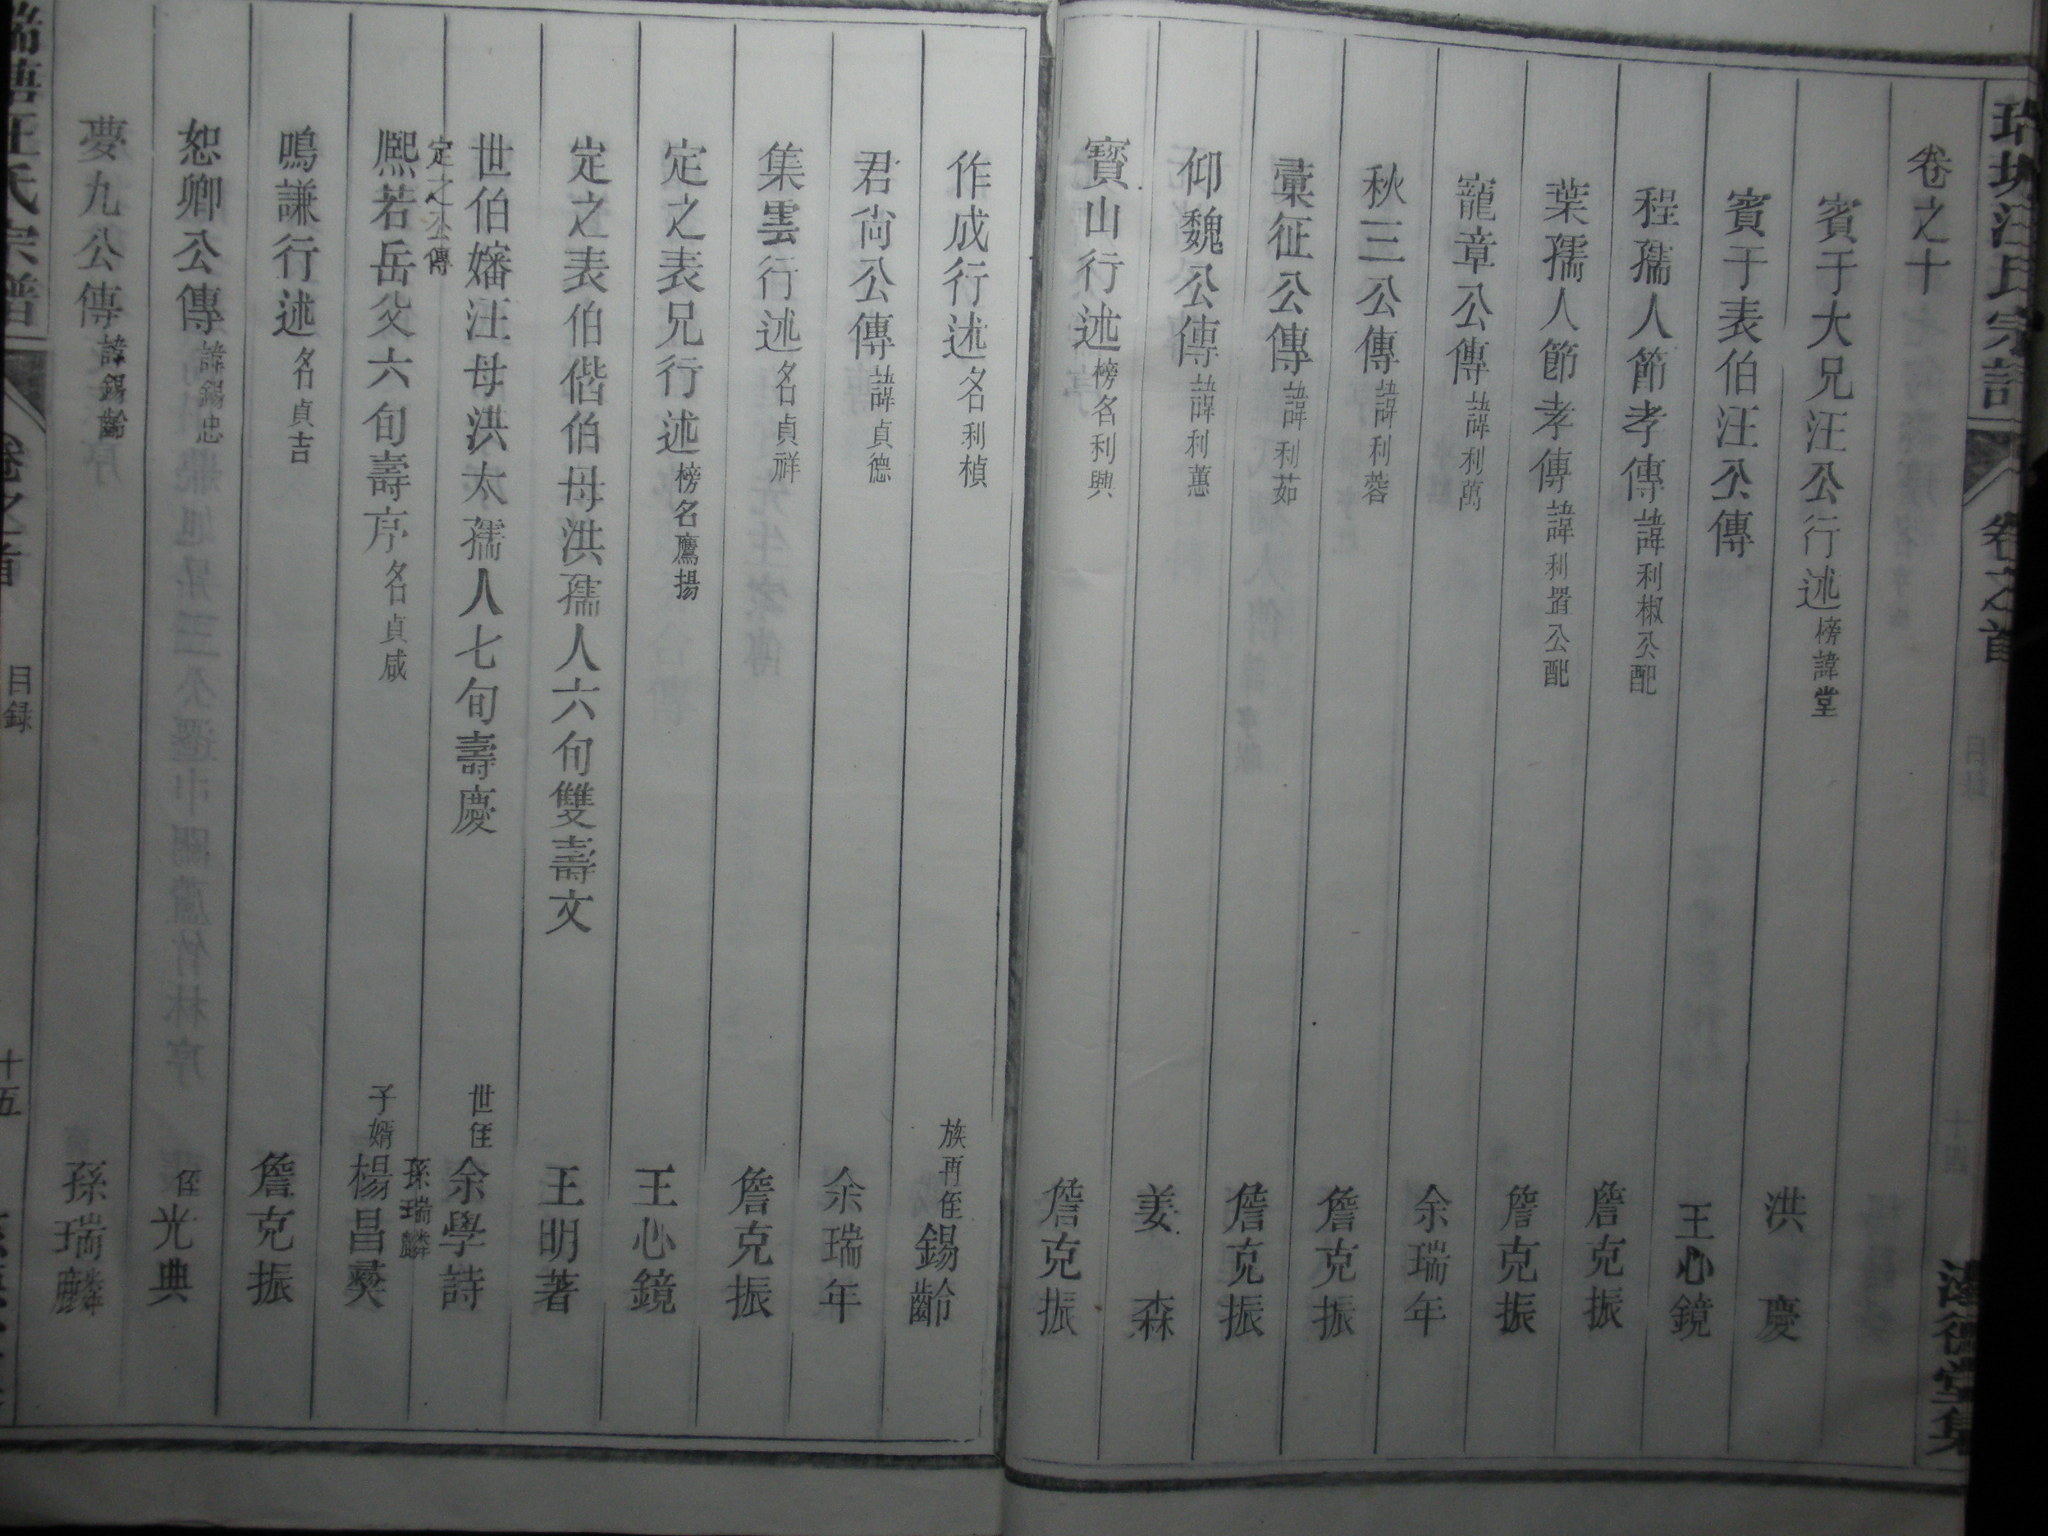 汪氏宗譜
卷之首
目録
卷之十
賓于大兄汪公行述 榜諱堂 洪慶
賓于表伯汪公傳 王心鏡
程孺人節孝傳 諱利椒公配 詹克振
葉孺人節孝傳 諱利畱公配 詹克振
寵章公傳 諱利萬 余瑞年
秋三公傳 諱利蓉 詹克振
彚征公傳 諱利茹 詹克振
仰魏公傳 諱利蕙 姜森
寶山行述 榜名利興 詹克振
作成行述 名利楨 族再侄錫齡
君尙公傳 諱貞德 余瑞年
集雲行述 名貞祥 詹克振
定之表兄行述 榜名鷹揚 王心鏡
定之表伯偕伯母洪孺人六旬雙壽文 王明著
世伯嬸汪母洪太孺人七旬壽慶 世侄余學詩
定之公傳 孫瑞麟
熙若岳父六旬壽序 名貞咸 子婿楊昌彜
鳴謙行述 名貞吉 詹克振
恕卿公傳 諱錫忠 侄光典
夢九公傳 諱錫齡 孫瑞麟
汪氏宗譜
卷之首
目録
十五